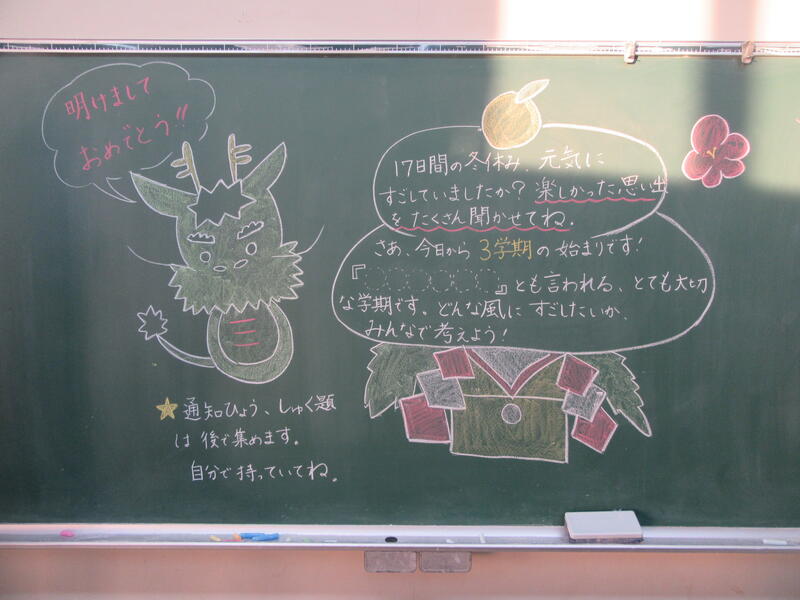 明けまして
おめでとう!!
17日間の冬休み、元気に
すごしていましたか？楽しかった思い出
をたくさん聞かせてね。
さあ、今日から3学期の始まりです！
『〇〇〇〇〇』とも言われる、とても大切
な学期です。どんな風にすごしたいか、
みんなで考えよう！
★通知ひょう、しゅく題
は後で集めます。
自分で持っていてね。